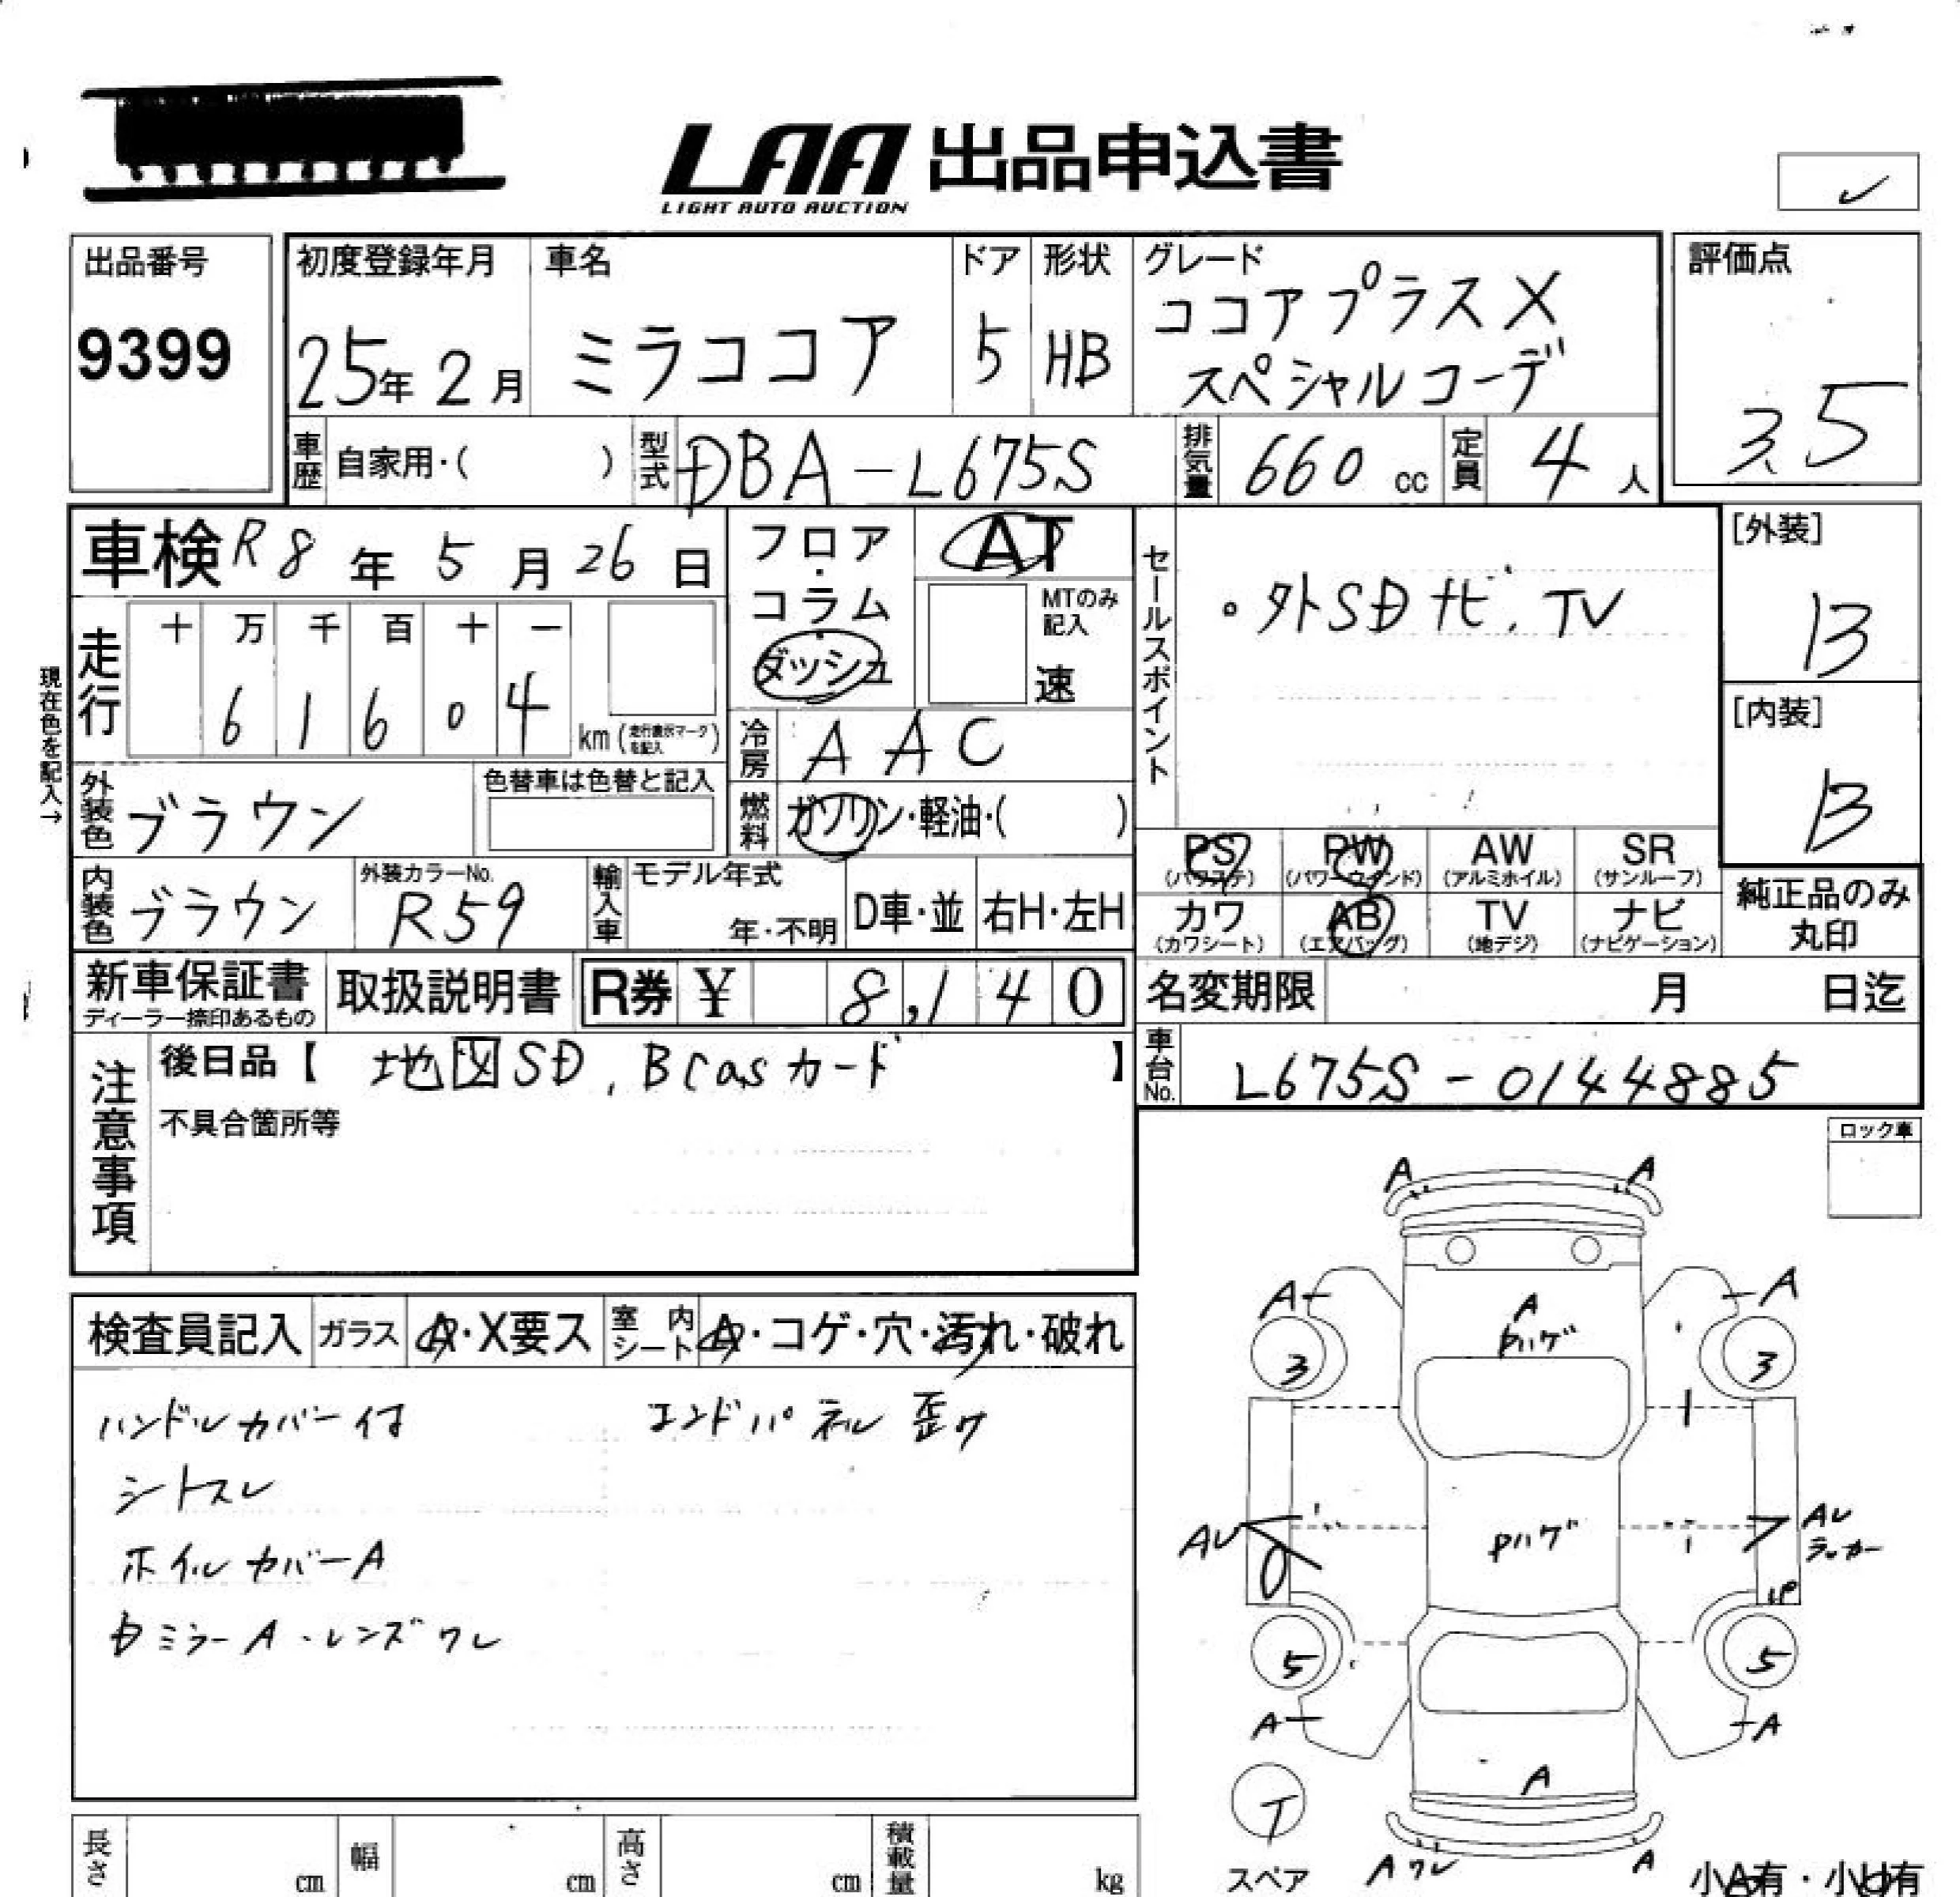 LAA 出品申込書
LIGHT AUTO AUCTION
出品番号
9399
初度登録年月
25年 2月
車名
ミラココア
ドア
5
形状
HB
グレード
ココアプラスX
スペシャルコーデ
評価点
3.5
車歴 自家用・( )
型式 DBA-L675S
排気量 660 cc
定員 4 人
車検 R8年 5月 26日
フロア・コラム
ダッシュ
AT
MTのみ記入
速
現在色を記入→
走行
十 万 千 百 十 一
6 1 6 0 4
km(走行表示マークを記入)
冷房 AAC
燃料 ガソリン・軽油・( )
外装色 ブラウン
色替車は色替と記入
内装色 ブラウン
外装カラーNo.
R59
輸入車
モデル年式
年・不明
D車・並
右H・左H
セールスポイント
・外SDナビ,TV
[外装]
B
[内装]
B
PS
(パワステ)
PW
(パワーウィンド)
AW
(アルミホイル)
SR
(サンルーフ)
カワ
(カワシート)
AB
(エアバッグ)
TV
(地デジ)
ナビ
(ナビゲーション)
純正品のみ
丸印
新車保証書
ディーラー捺印あるもの
取扱説明書
R券 ¥ 8,140
名変期限 月 日迄
車台No. L675S-0144885
注意事項
後日品【 地図SD, BCasカード 】
不具合箇所等
ロック車
検査員記入
ガラス A・X要ス
室内シート A・コゲ・穴・汚れ・破れ
ハンドルカバー付
エンドパネル歪ケ
シトスレ
ホイルカバーA
ミラーA・レンズワレ
A A
A A
A
Pハゲ
3 3
Pハゲ
AU
AU
ラッカー
5 5
A A
A
T
スペア
Aワレ
A
小A有・小U有
長さ cm
幅 cm
高さ cm
積載量 kg